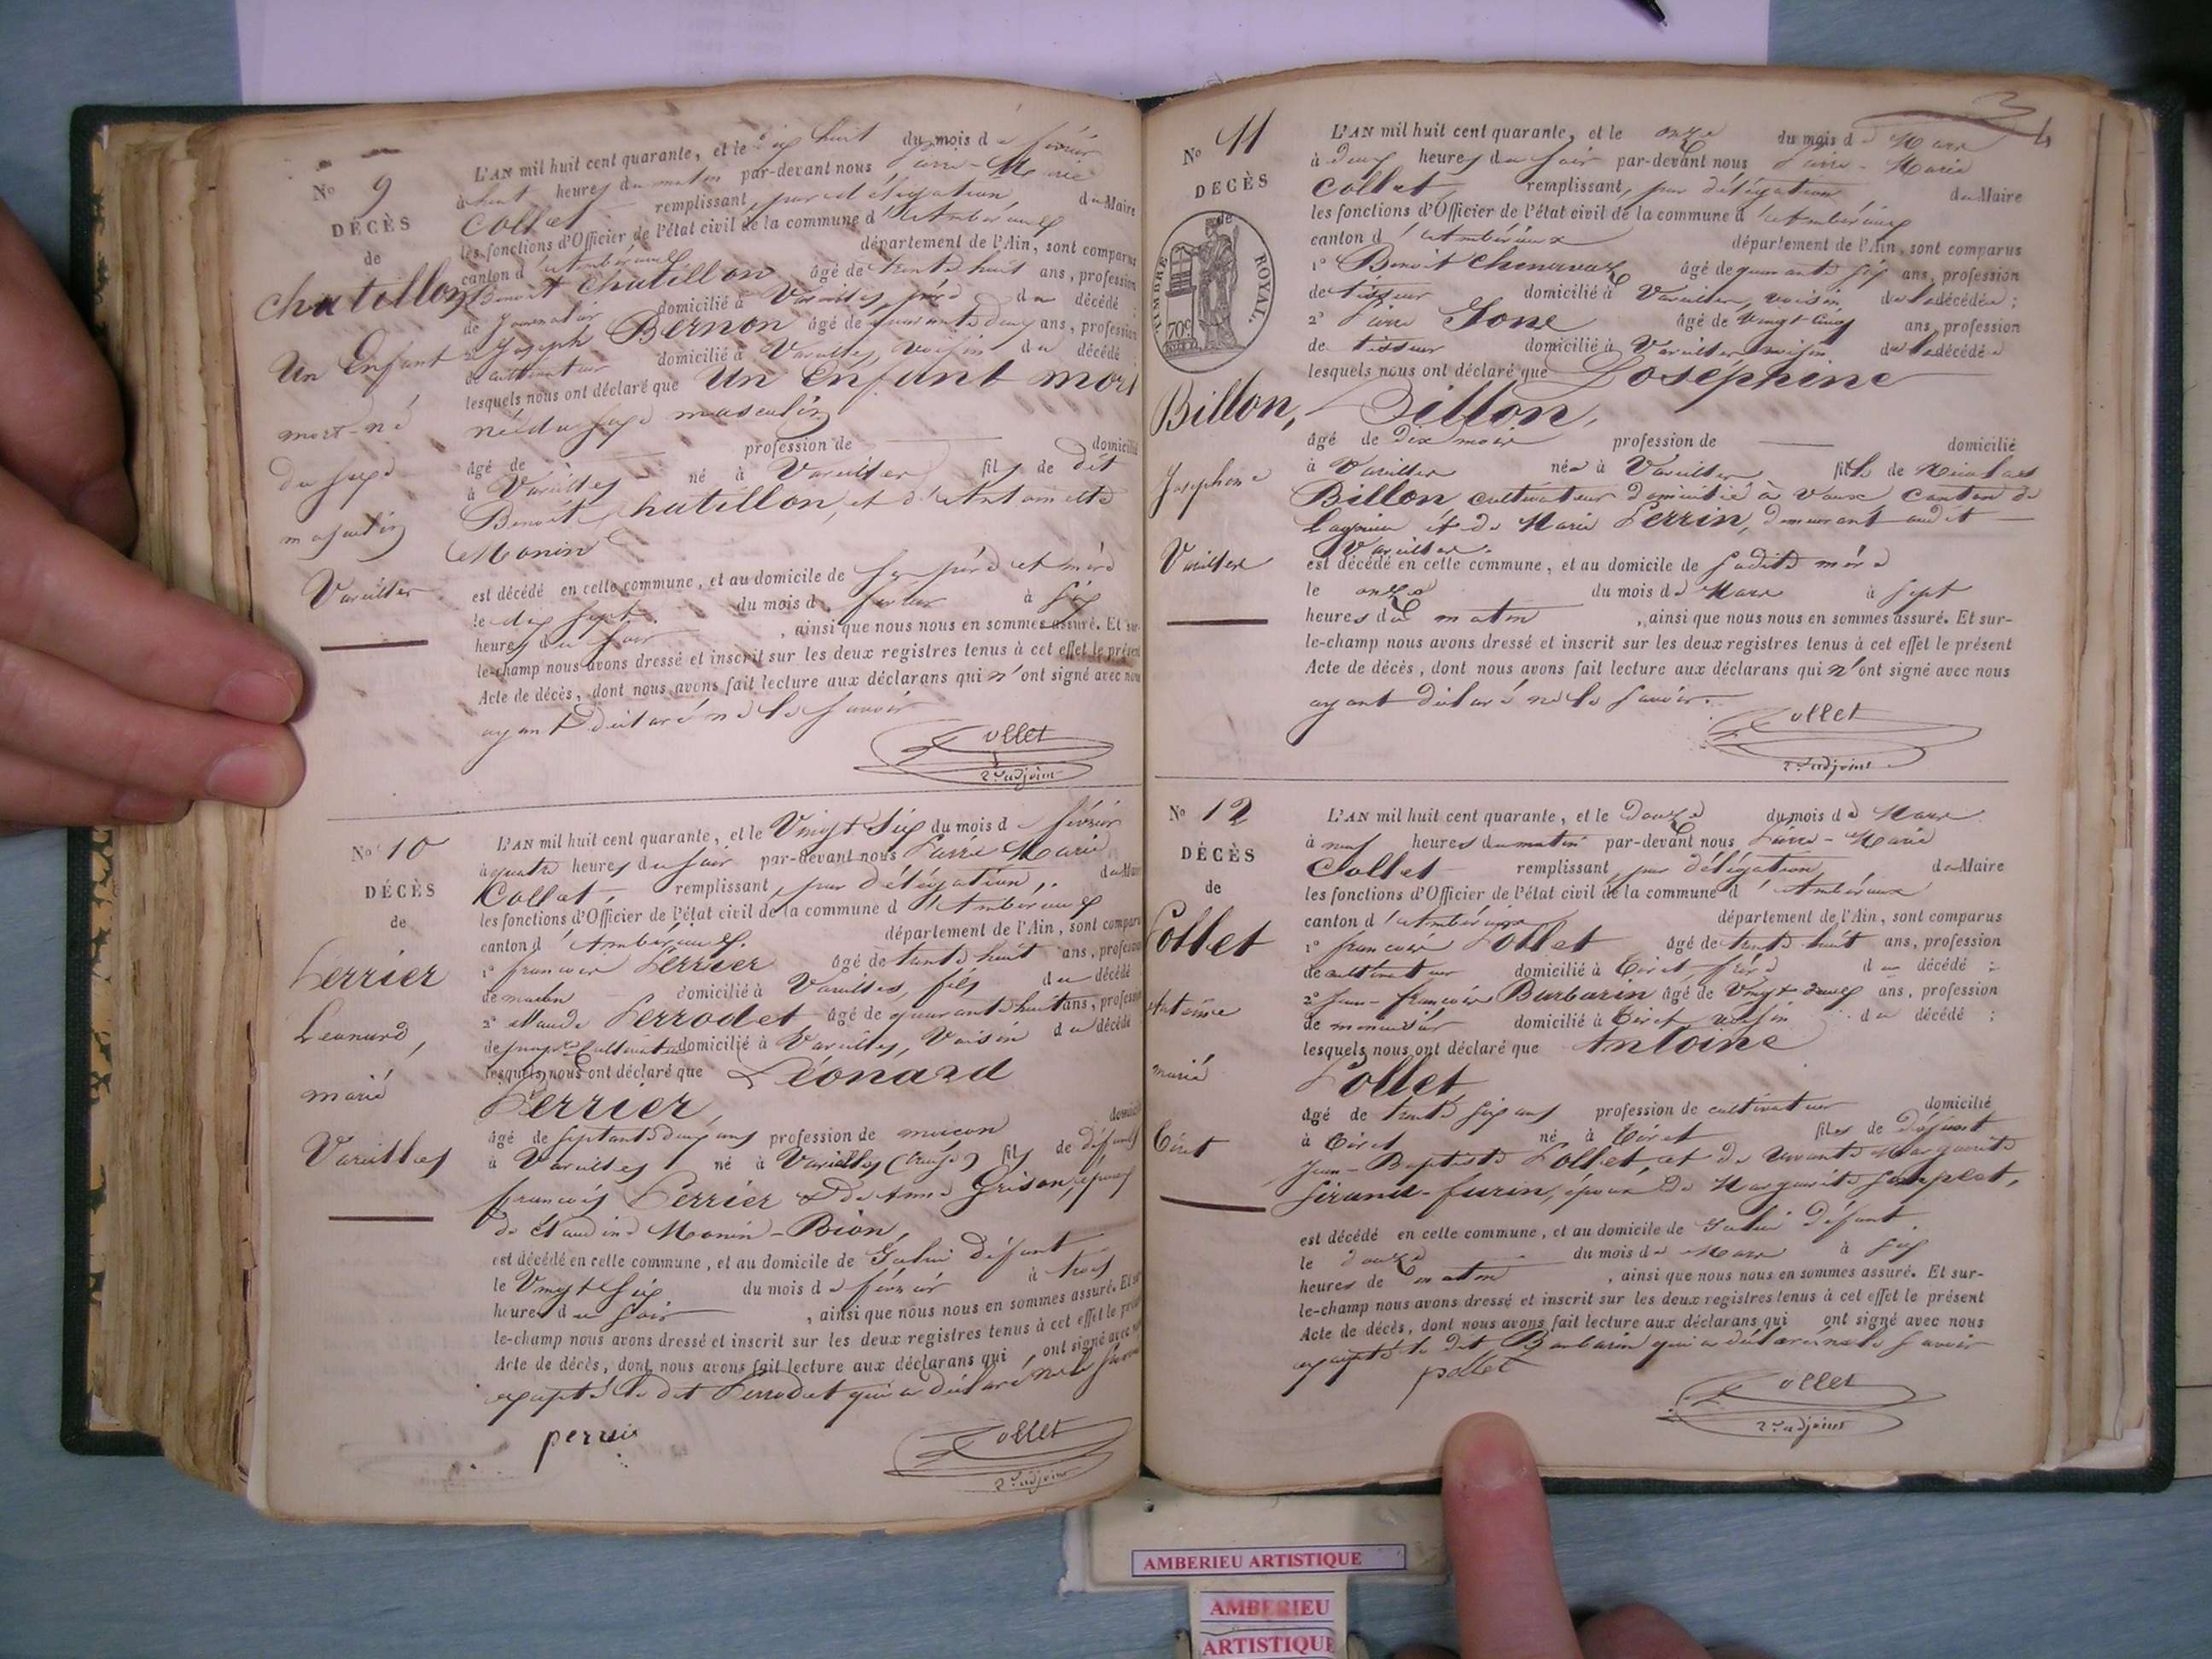 No 9
DÉCÈS
de
chatillon
Un Enfant
mort-né
du sexe
masculin
Vareilles
L'AN mil huit cent quarante, et le dix huit du mois de février
à huit heures du matin par-devant nous Pierre-Marie
Collet remplissant, par délégation du Maire
les fonctions d'Officier de l'état civil de la commune d'Ambérieux
canton d'Ambérieux département de l'Ain, sont comparus
1° Benoit chatillon âgé de trente huit ans, profession
de journalier domicilié à Vareilles, père du décédé
2° Joseph Bernon âgé de quarante deux ans, profession
de cultivateur domicilié à Vareilles, voisin du décédé
lesquels nous ont déclaré que Un Enfant mort
né du sexe masculin
âgé de profession de domicilié
à Vareilles né à Vareilles fils de dit
Benoit chatillon, et d'Antoinette
Monin
est décédé en cette commune, et au domicile de ses père et mère
le dix sept du mois de février à six
heures du soir, ainsi que nous nous en sommes assuré. Et sur-
le-champ nous avons dressé et inscrit sur les deux registres tenus à cet effet le présent
Acte de décès, dont nous avons fait lecture aux déclarans qui n'ont signé avec nous
ayant déclaré ne le savoir
Collet
2e adjoint
No 10
DÉCÈS
de
Perrier
Leonard,
marié
Vareilles
L'AN mil huit cent quarante, et le Vingt Six du mois de février
à quatre heures du soir par-devant nous Pierre Marie
Collet, remplissant, par délégation, du Maire
les fonctions d'Officier de l'état civil de la commune d'Ambérieux
canton d'Ambérieux. département de l'Ain, sont comparus
1° françois Perrier âgé de trente huit ans, profession
de macon domicilié à Vareilles, fils du décédé
2° Claude Perrodet âgé de quarante huit ans, profession
de cultivateur domicilié à Vareilles, Voisin du décédé
lesquels nous ont déclaré que Léonard
Perrier,
âgé de septante deux ans profession de macon domicilié
à Vareilles né à Varielles (creuse) fils de défunts
françois Perrier & de Anne Grison, époux
de Claudine Monin-Bion,
est décédé en cette commune, et au domicile de Gelui Défunt
le Vingt Six du mois de février à trois
heures du soir, ainsi que nous nous en sommes assuré. Et sur
le-champ nous avons dressé et inscrit sur les deux registres tenus à cet effet le présent
Acte de décès, dont nous avons fait lecture aux déclarans qui ont signé avec nous
excepté le dit Perrodet qui a déclaré ne le savoir
Collet
2e adjoint
No 11
DÉCÈS
de
TIMBRE ROYAL.
70c
Billon,
Josephine
Vareilles
L'AN mil huit cent quarante, et le onze du mois de Mars
à deux heures du soir par-devant nous Pierre-Marie
Collet, remplissant, par délégation du Maire
les fonctions d'Officier de l'état civil de la commune d'Ambérieux
canton d'Ambérieux département de l'Ain, sont comparus
1° Benoit Chenevaz âgé de quarante six ans, profession
de tisseur domicilié à Vareilles, voisin de la décédée;
2° Pierre Gone âgé de Vingt Cinq ans, profession
de tisseur domicilié à Vareilles voisin de la décédée
lesquels nous ont déclaré que Josephine
Billon,
âgé de Dix mois profession de domicilié
à Vareilles née à Vareilles fille de Nicolas
Billon cultivateur domicilié à Vaux Canton de
Lagnieu et de Marie Perrin, demeurant audit
Vareilles.
est décédé en cette commune, et au domicile de sadite mère
le onze du mois de Mars à sept
heures du matin, ainsi que nous nous en sommes assuré. Et sur-
le-champ nous avons dressé et inscrit sur les deux registres tenus à cet effet le présent
Acte de décès, dont nous avons fait lecture aux déclarans qui n'ont signé avec nous
ayant déclaré ne le savoir.
Collet
2e adjoint
No 12
DÉCÈS
de
Pollet
Antoine
marié
Tiret
L'AN mil huit cent quarante, et le Douze du mois de Mars
à neuf heures du matin par-devant nous Pierre-Marie
Collet remplissant, par délégation du Maire
les fonctions d'Officier de l'état civil de la commune d'Ambérieux
canton d'Ambérieux département de l'Ain, sont comparus
1° françois Pollet âgé de trente huit ans, profession
de cultivateur domicilié à Tiret, frère du décédé;
2° Jean-françois Barbarin âgé de Vingt deux ans, profession
de menuisier domicilié à Tiret, voisin du décédé;
lesquels nous ont déclaré que Antoine
Pollet
âgé de trente six ans profession de cultivateur domicilié
à Tiret né à Tiret fils de Défunt
Jean-Baptiste Pollet, et de vivante Marguerite
Girand-furin, époux de Marguerite
est décédé en cette commune, et au domicile de Gelui Défunt
le douze du mois de Mars à six
heures de matin, ainsi que nous nous en sommes assuré. Et sur-
le-champ nous avons dressé et inscrit sur les deux registres tenus à cet effet le présent
Acte de décès, dont nous avons fait lecture aux déclarans qui ont signé avec nous
excepté le dit Barbarin qui a déclaré ne le savoir
pollet
Collet
2e adjoint
AMBERIEU ARTISTIQUE
AMBERIEU
ARTISTIQUE